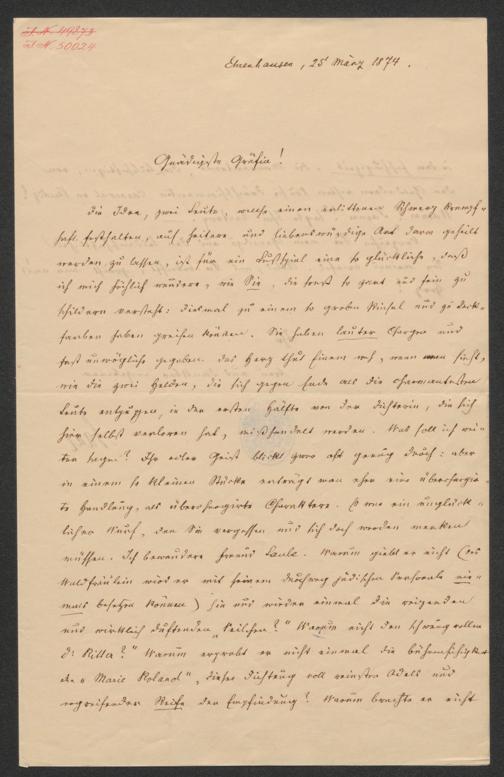 I. N. 49273
I. N. 50024
Ehrenhausen, 25 März 1874.
Gnädigste Gräfin!
Die Idee, zwei Leute, welche einen erlittenen Schmerz krampf-
haft festhalten, auf heitere und liebenswürdige Art davon geheilt
werden zu lassen, ist für ein Lustspiel eine so glückliche, daß
ich mich höchlich wundere, wie Sie, die sonst so zart und fein zu
schildern versteht: diesmal zu einem so groben Pinsel und zu Deck-
farben haben greifen können. Sie haben lauter Chargen und
fast unmögliche gegeben. Das Herz thut Einem weh, wenn man sieht,
wie die zwei Helden, die sich gegen Ende als die charmantesten
Leute entpuppen, in der ersten Hälfte von der Dichterin, die sich
hier selbst verloren hat, mißhandelt werden. Was soll ich wei-
ter sagen? Ihr edler Geist blickt zwar oft genug durch: aber
in einem so kleinen Stücke erträgt man eher eine überchargir-
te Handlung, als überchargirte Charaktere. Es war ein unglück-
licher Wurf, den Sie vergessen und sich doch werden merken
müssen. Ich bewundere Laube. Warum giebt er nicht (das
Waldfräulein wird er mit seinem jüdischen Personale nie-
mals besetzen können) hin und wieder einmal die reizenden
und wirklich duftenden "Veilchen?" Warum nicht den schwungvollen
Dr Ritter?" Warum erprobt er nicht einmal die Bühnenfähigkeit
der "Marie Roland", dieser Dichtung voll reinsten Adels und
ergreifender Reife der Empfindung? Warum brachte er nicht